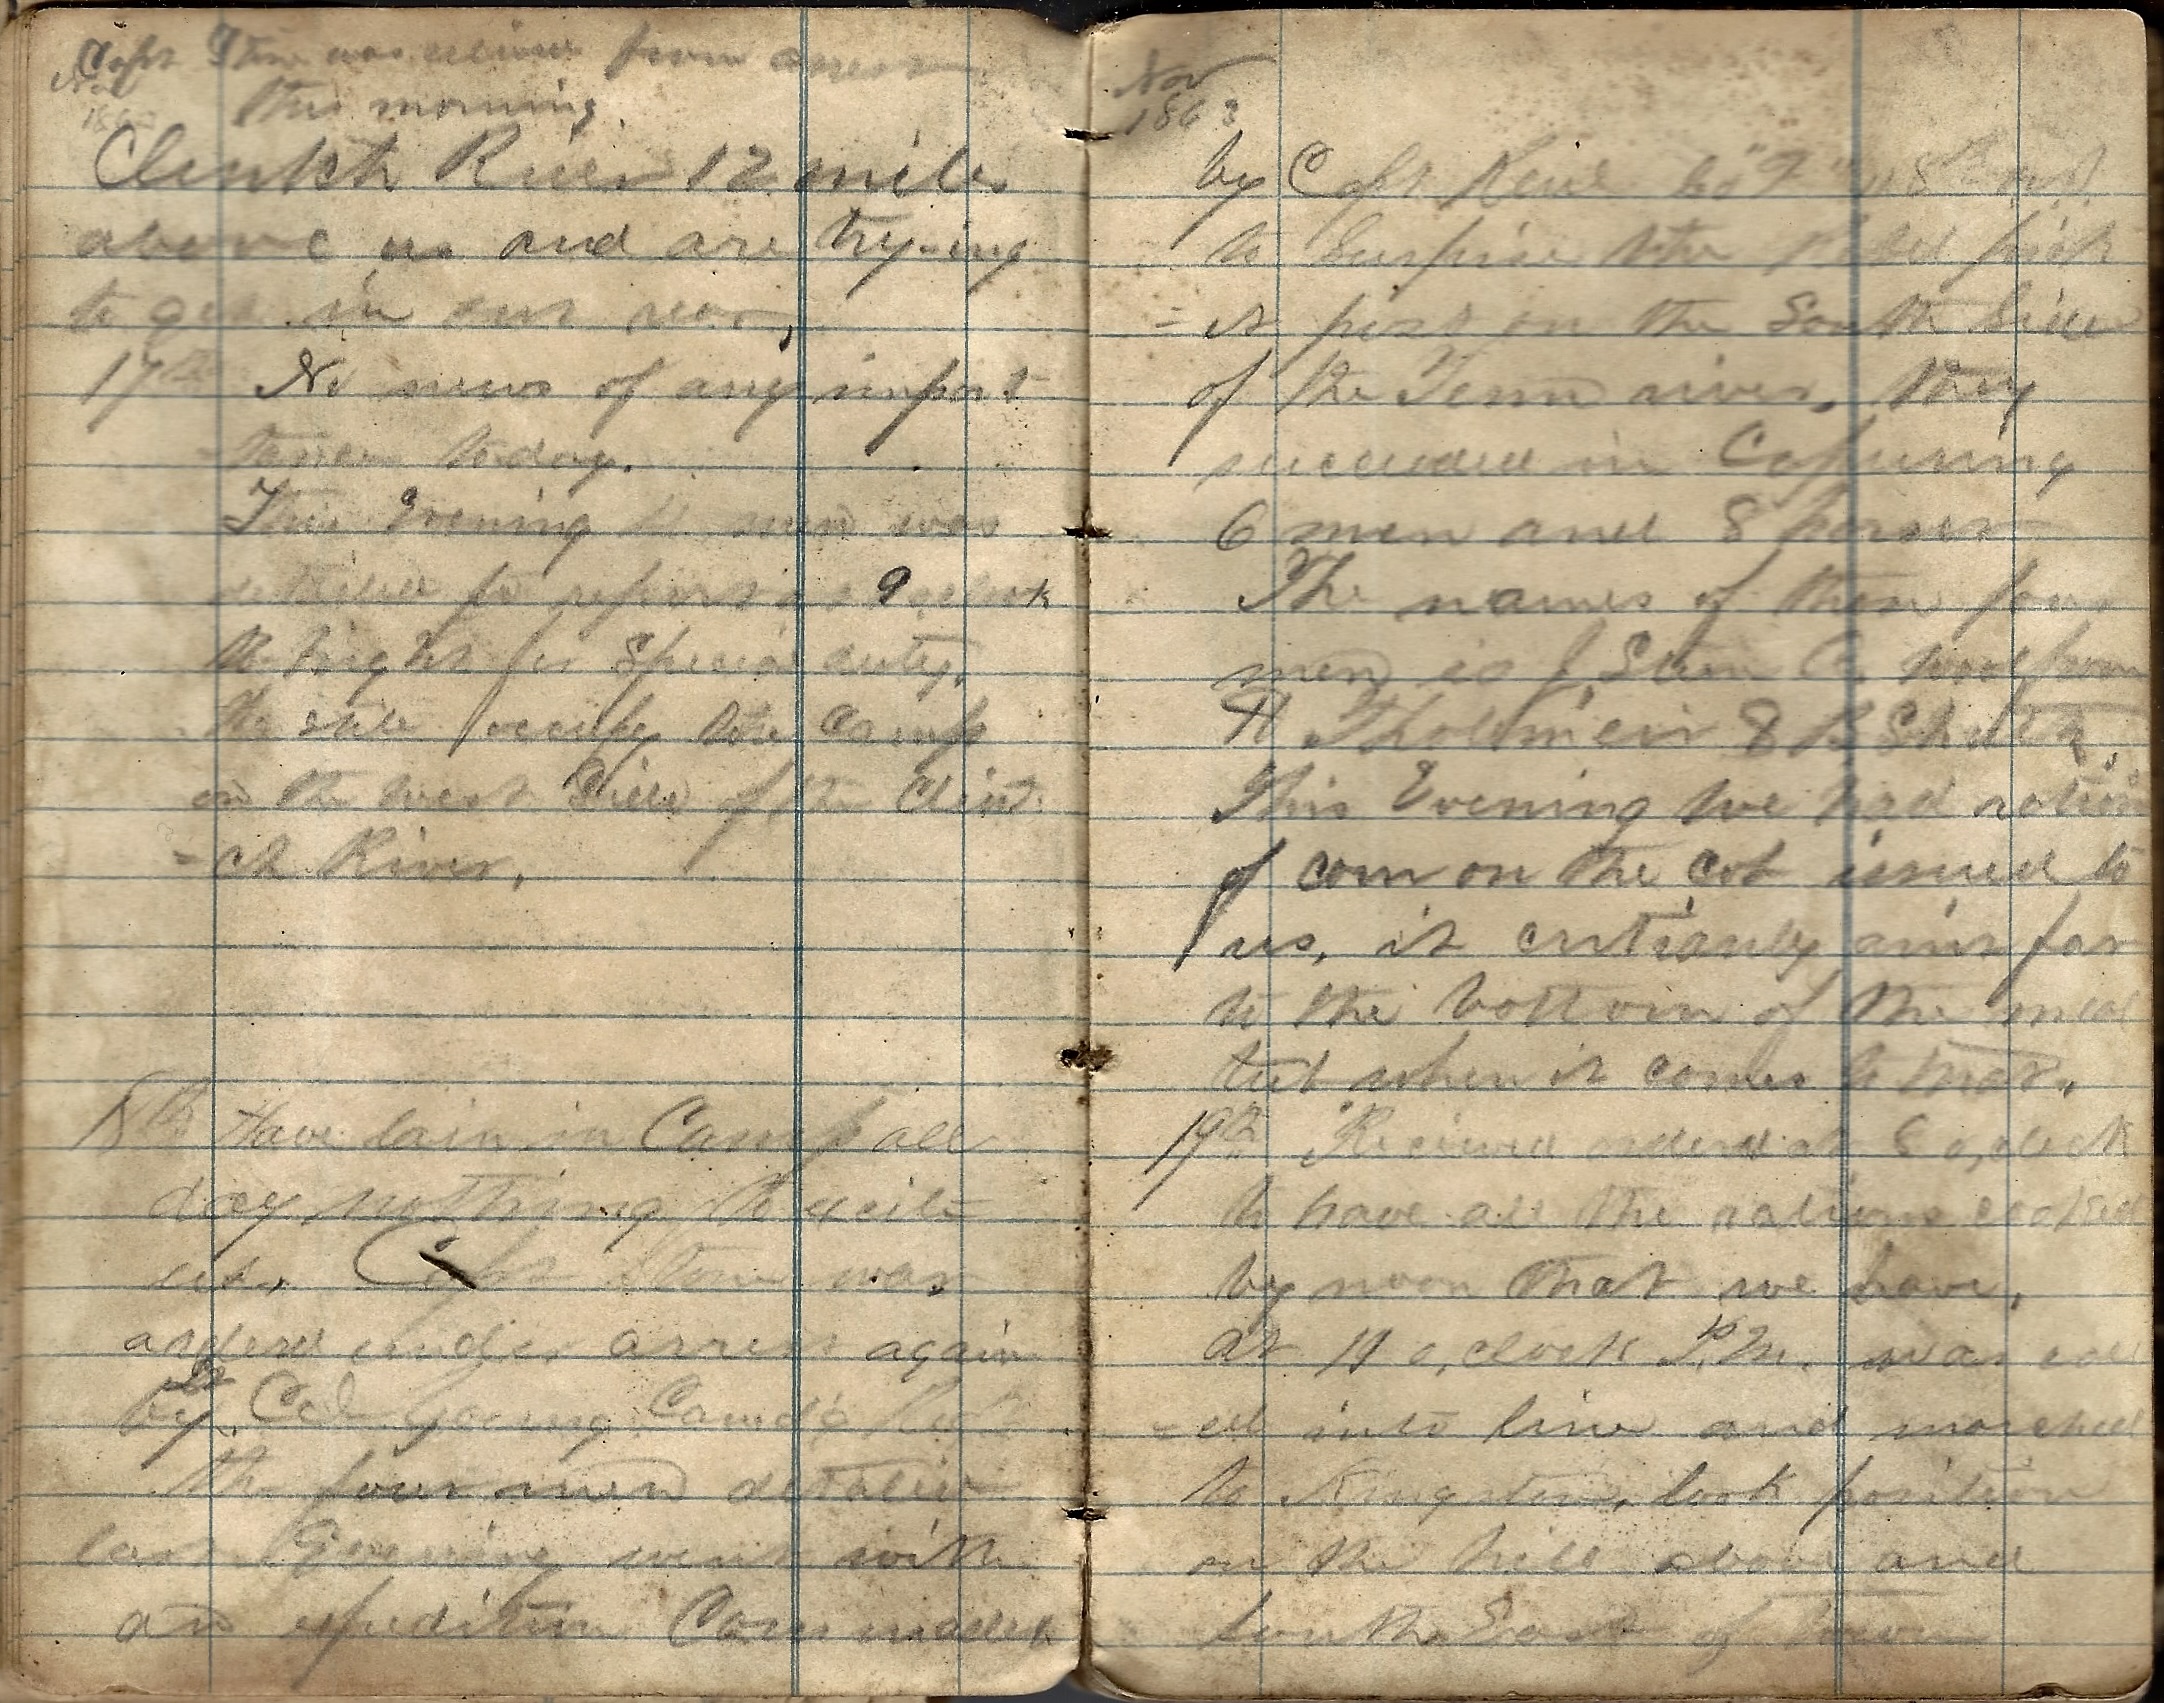 Capt Stone was releived from arrest
this morning
Nov
186
Clinkch River 12 miles
above us and are try-ing
to get in our rear,
17th No news of any import
tance today.
This Evening 4 men was
detailed to report at 9 oclock
to night for Special duty.
We still occupy the Camp
on the west Side of the Clint
=ch River.
18th Have lain in Camp all
day nothing to exite
us. Capt Stone was
under arrest again
by Col. Young Comdg
The four men detailed
last Evening went with
an expedition Commaded
Nov
1863
by Capt Co "F" 118th
to Surprise the Rebel pick
=et post on the South Side
of the Tenn river. they
succeeded in Capturing
6 men and 8 horses
The names of them four
men is J Stein C
H Tholomeir & B
This Evening we had rations
of corn on the cob issued to
us, it certianly aint far
to the bottom of the meal
tub when it comes to that.
19th Received orders at 8 o,clock
to have all the rations cooked
by noon that we have.
at 11 o,clock P.M. was call
=ed into line and marched
to Kingston, took position
on the hill above and
South East of Town